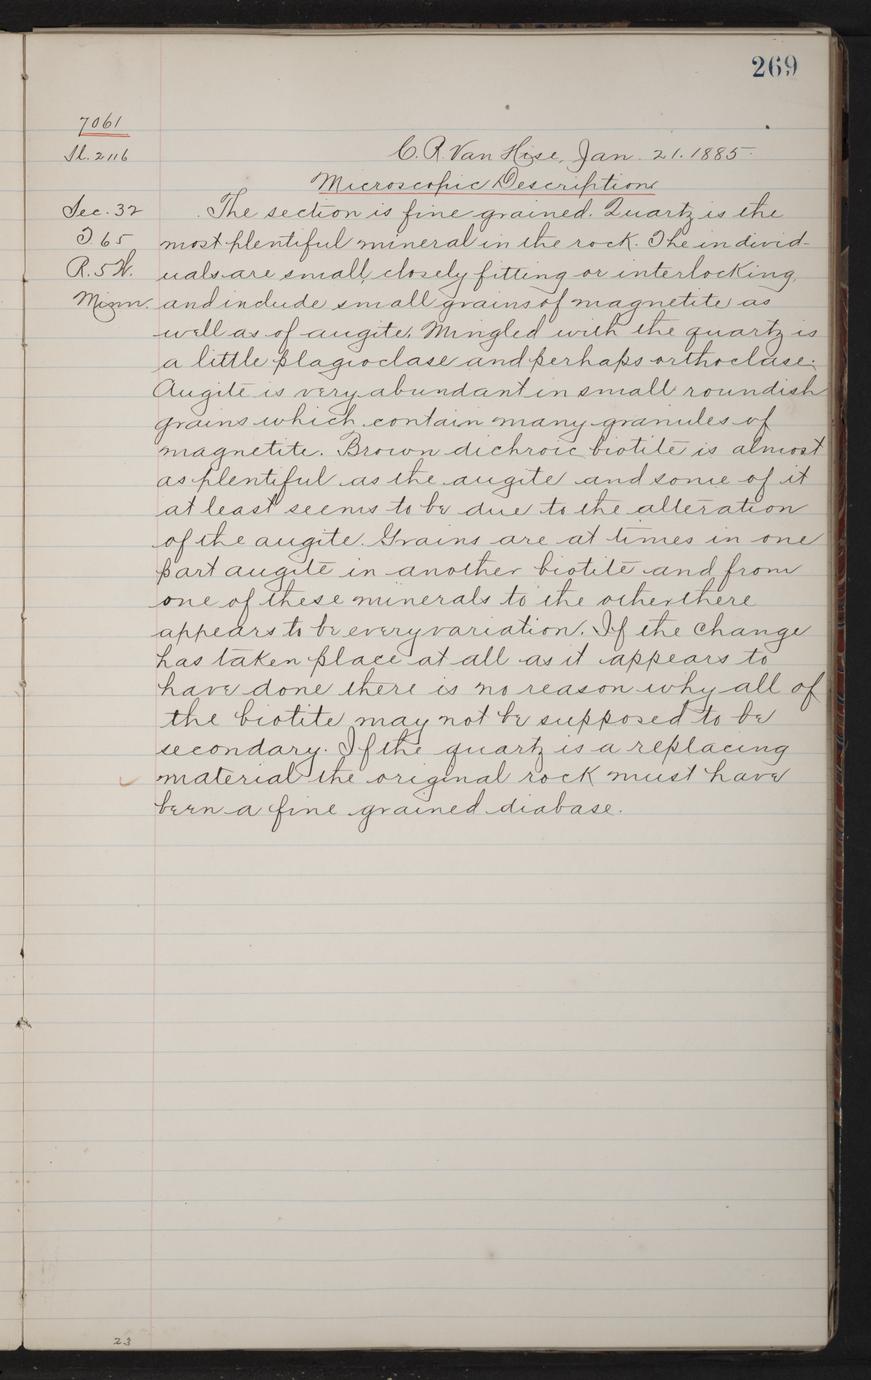 269
7061
Sl. 2116
C. R. Van Hise, Jan. 21. 1885.
Microscopic Description
Sec. 32
T 65
R. 5 W.
Minn.
The section is fine grained. Quartz is the
most plentiful mineral in the rock. The individ-
uals are small, closely fitting or interlocking,
and include small grains of magnetite as
well as of augite. Mingled with the quartz is
a little plagioclase and perhaps orthoclase.
Augite is very abundant in small roundish
grains which contain many granules of
magnetite. Brown dichroic biotite is almost
as plentiful as the augite and some of it
at least seems to be due to the alteration
of the augite. Grains are at times in one
part augite in another biotite and from
one of these minerals to the other there
appears to be every variation. If the change
has taken place at all as it appears to
have done there is no reason why all of
the biotite may not be supposed to be
secondary. If the quartz is a replacing
material the original rock must have
been a fine grained diabase.
23